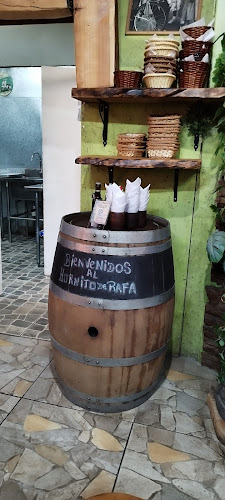 Bienvenidos
AL
HORNITO DE RAFA